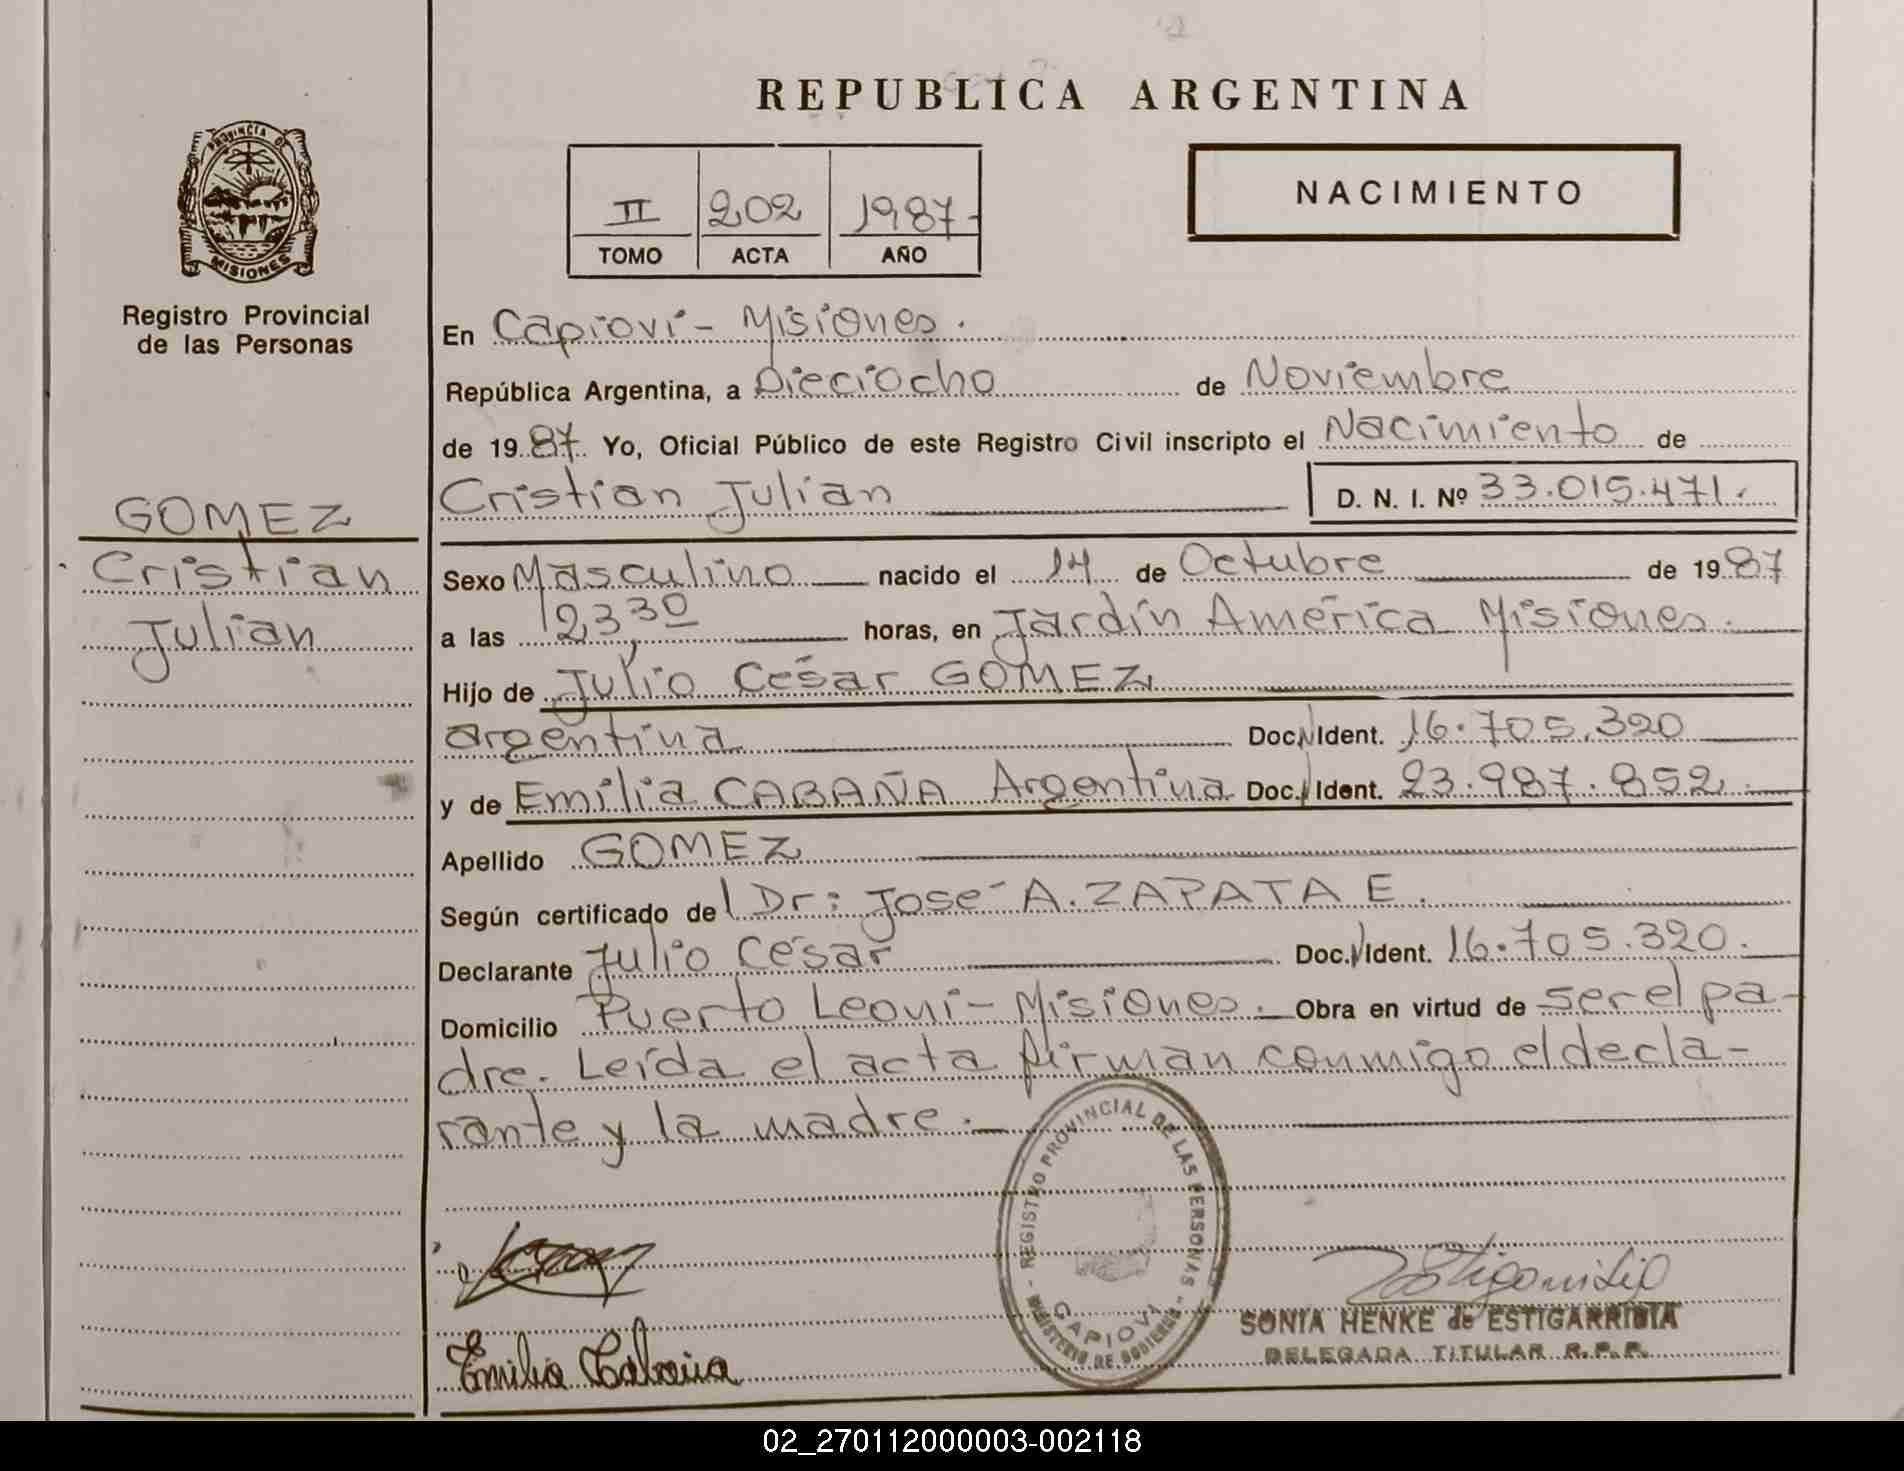 REPUBLICA ARGENTINA
PROVINCIA DE
MISIONES
Registro Provincial
de las Personas
II 202 1987-
TOMO ACTA AÑO
NACIMIENTO
GOMEZ
Cristian
Julian
En Capioví - Misiones.
República Argentina, a Dieciocho de Noviembre
de 1987 Yo, Oficial Público de este Registro Civil inscripto el Nacimiento de
Cristian Julian D. N. I. Nº 33.015.471.
Sexo Masculino nacido el 14 de Octubre de 1987
a las 23,30 horas, en Jardín América Misiones.
Hijo de Julio César GOMEZ
argentina Doc. Ident. 16.705.320
y de Emilia CABAÑA Argentina Doc. Ident. 23.987.852.
Apellido GOMEZ
Según certificado del Dr: José A. ZAPATA E.
Declarante Julio César Doc. Ident. 16.705.320.
Domicilio Puerto Leoni - Misiones. Obra en virtud de ser el pa-
dre. Leída el acta firman conmigo el decla-
rante y la madre.
REGISTRO PROVINCIAL DE LAS PERSONAS
CAPIOVI
MINISTERIO DE GOBIERNO
Emilia Cabaña
SONIA HENKE de ESTIGARRIBIA
DELEGADA TITULAR R.P.P.
02_270112000003-002118